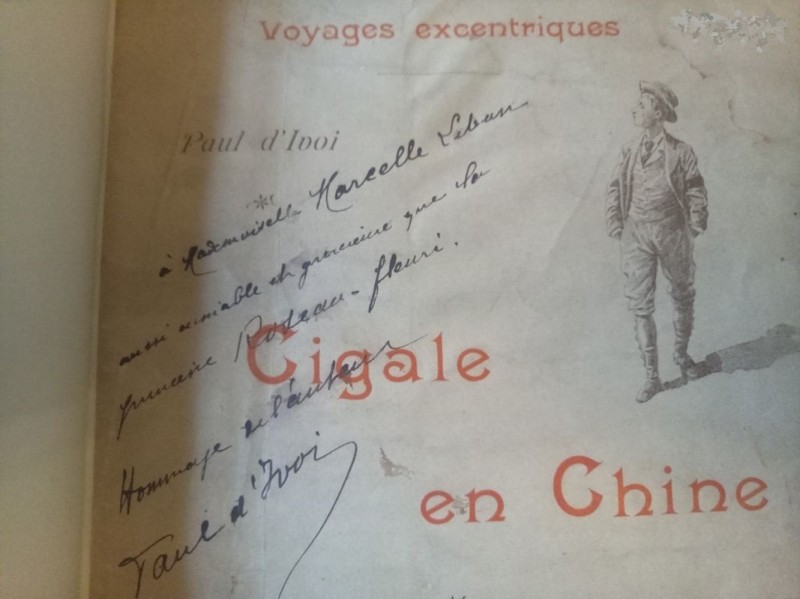 Voyages excentriques
Paul d'Ivoi
*
à Mademoiselle Marcelle Leban
aussi aimable et gracieuse que la
princesse Roseau-fleuri.
Hommage de l'auteur
Paul d'Ivoi
Cigale
en Chine